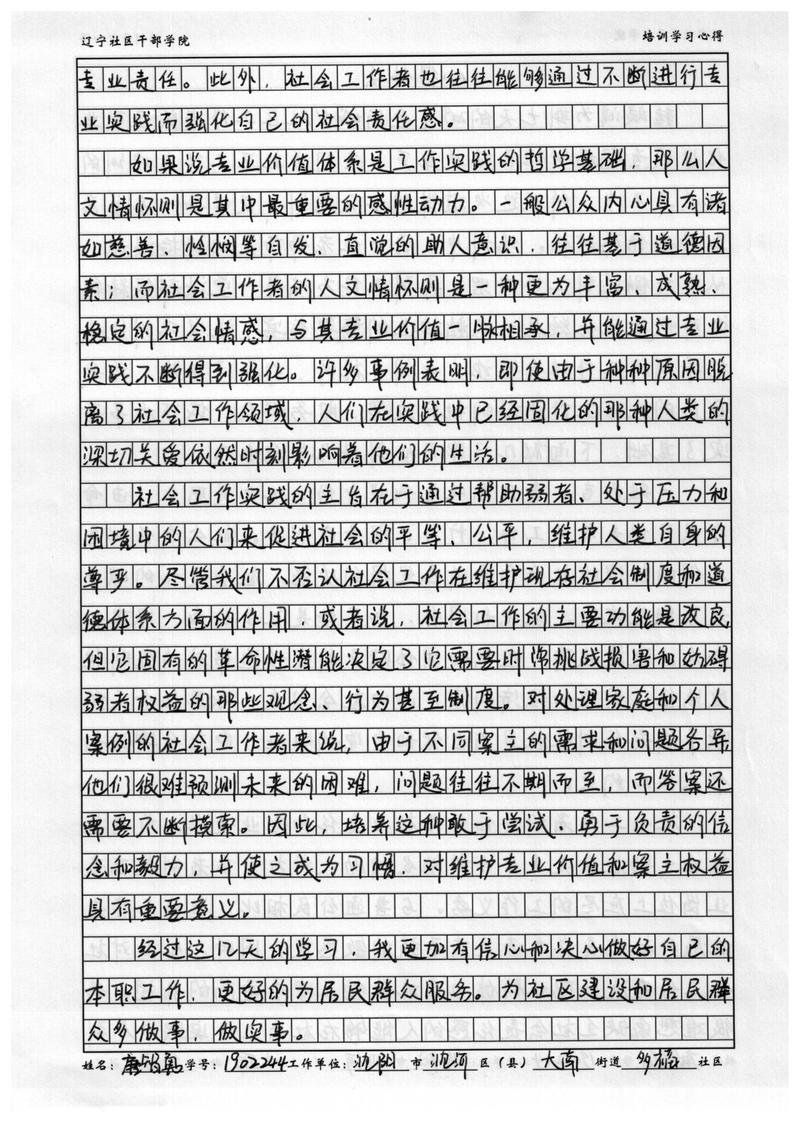 辽宁社区干部学院 培训学习心得
专业责任。此外，社会工作者也往往能够通过不断进行专
业实践而强化自己的社会责任感。
如果说专业价值体系是工作实践的哲学基础，那么人
文情怀则是其中最重要的感性动力。一般公众内心具有诸
如慈善、怜悯等自发、直觉的助人意识，往往基于道德因
素；而社会工作者的人文情怀则是一种更为丰富、成熟、
稳定的社会情感，与其专业价值一脉相承，并能通过专业
实践不断得到强化。许多事例表明，即使由于种种原因脱
离了社会工作领域，人们在实践中已经固化的那种人类的
深切关爱依然时刻影响着他们的生活。
社会工作实践的主旨在于通过帮助弱者、处于压力和
困境中的人们来促进社会的平等，公平，维护人类自身的
尊严。尽管我们不否认社会工作在维护现存社会制度和道
德体系方面的作用，或者说，社会工作的主要功能是改良，
但它固有的革命性潜能决定了它需要时常挑战损害和妨碍
弱者权益的那些观念、行为甚至制度。对处理家庭和个人
案例的社会工作者来说，由于不同案主的需求和问题各异
他们很难预测未来的困难，问题往往不期而至，而答案还
需要不断摸索。因此，培养这种敢于尝试、勇于负责的信
念和毅力，并使之成为习惯，对维护专业价值和案主权益
具有重要意义。
经过这几天的学习，我更加有信心和决心做好自己的
本职工作，更好的为居民群众服务。为社区建设和居民群
众多做事，做实事。
姓名： 学号：1902244 工作单位：沈阳 市 沈河 区（县） 大南 街道 多福 社区